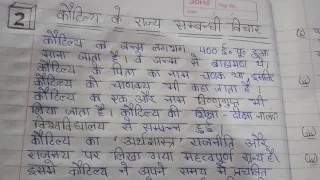 2
कौटिल्य के राज्य सम्बन्धी विचार
कौटिल्य का जन्म लगभग 400 ई० पू० हुआ
माना जाता है। वे जन्म से ब्राह्मण थे।
कौटिल्य के पिता का नाम चणक था इसलिए
कौटिल्य को चाणक्य भी कहा जाता है।
कौटिल्य का एक और नाम विष्णुगुप्त भी
लिया जाता है। कौटिल्य की शिक्षा दीक्षा नालंदा
विश्वविद्यालय से सम्पन्न हुई।
कौटिल्य का 'अर्थशास्त्र' राजनीति और
राजनय पर लिखा गया महत्वपूर्ण ग्रन्थ है।
इसमें कौटिल्य ने अपने समय में प्रचलित